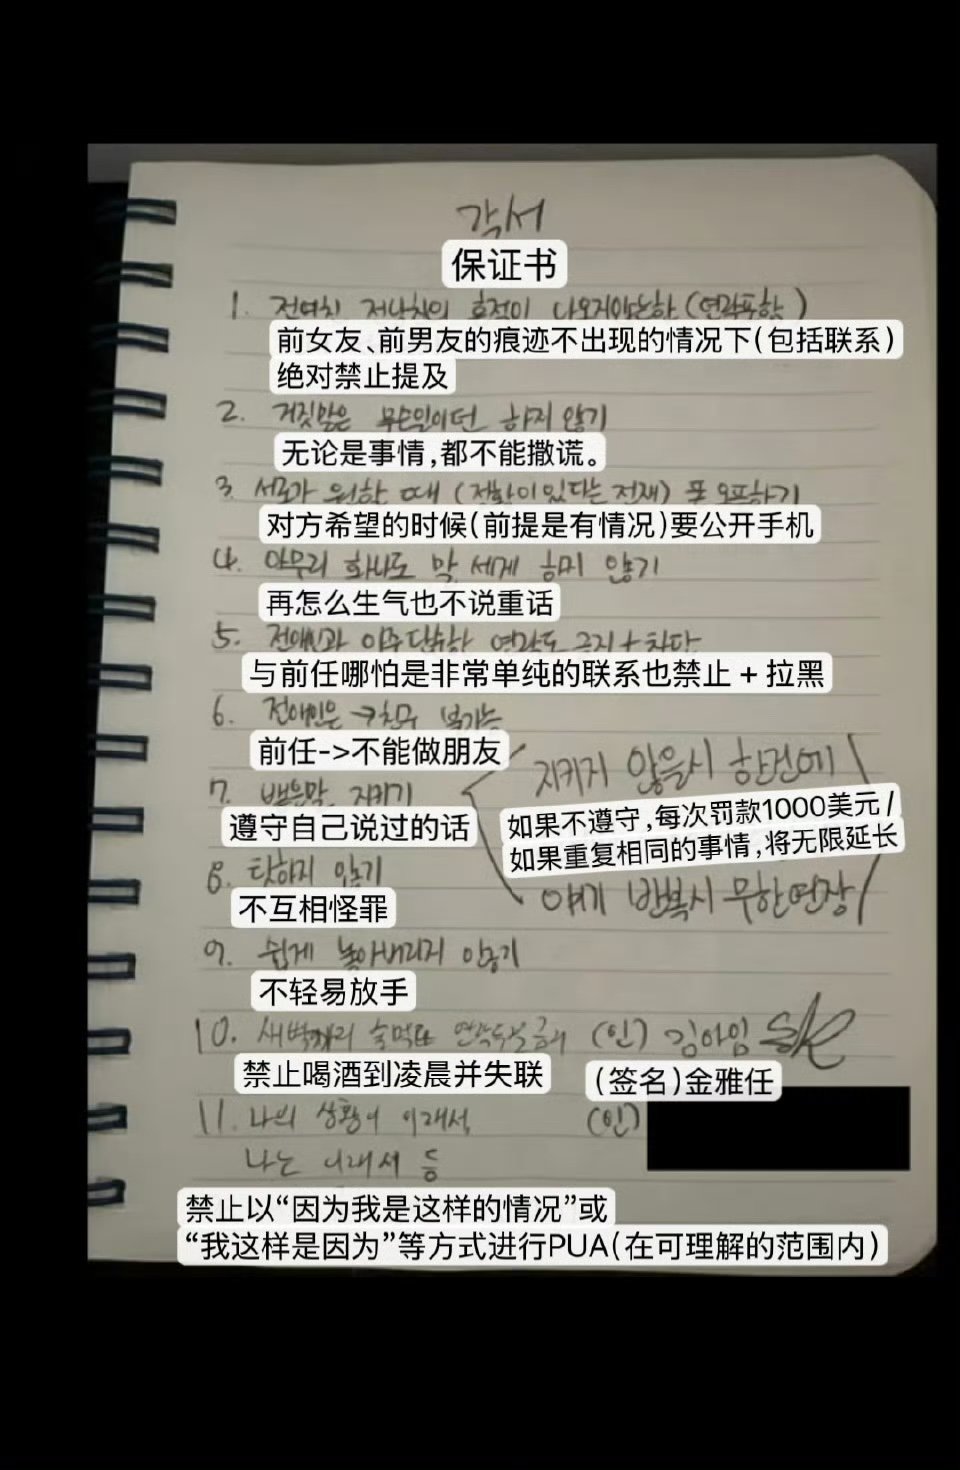 각서
保证书
1. 전여친 전남친의 흔적이 나오지않는한 (연락포함)
前女友、前男友的痕迹不出现的情况下(包括联系)
绝对禁止提及
2. 거짓말은 무슨일이던 하지 않기
无论是事情,都不能撒谎。
3. 서로가 원할 때 ( 있다는 전재) 폰 오픈하기
对方希望的时候(前提是有情况)要公开手机
4. 아무리 화나도 말 세게 하지 않기
再怎么生气也不说重话
5. 전애인과 아주 단순한 연락도 금지 + 차단
与前任哪怕是非常单纯的联系也禁止 + 拉黑
6. 전애인은 → 친구 불가능
前任->不能做朋友
7. 뱉은말 지키기
遵守自己说过的话
지키지 않을시 한건에
如果不遵守,每次罚款1000美元/
如果重复相同的事情,将无限延长
얘기 반복시 무한연장
8. 탓하지 않기
不互相怪罪
9. 쉽게 놓아버리지 않기
不轻易放手
10. 새벽까지 술먹고 연락두절 금지 (인) 김아임
禁止喝酒到凌晨并失联
(签名)金雅任
11. 나의 상황이 이래서, (인)
나는 이래서 등
禁止以“因为我是这样的情况”或
“我这样是因为”等方式进行PUA(在可理解的范围内)